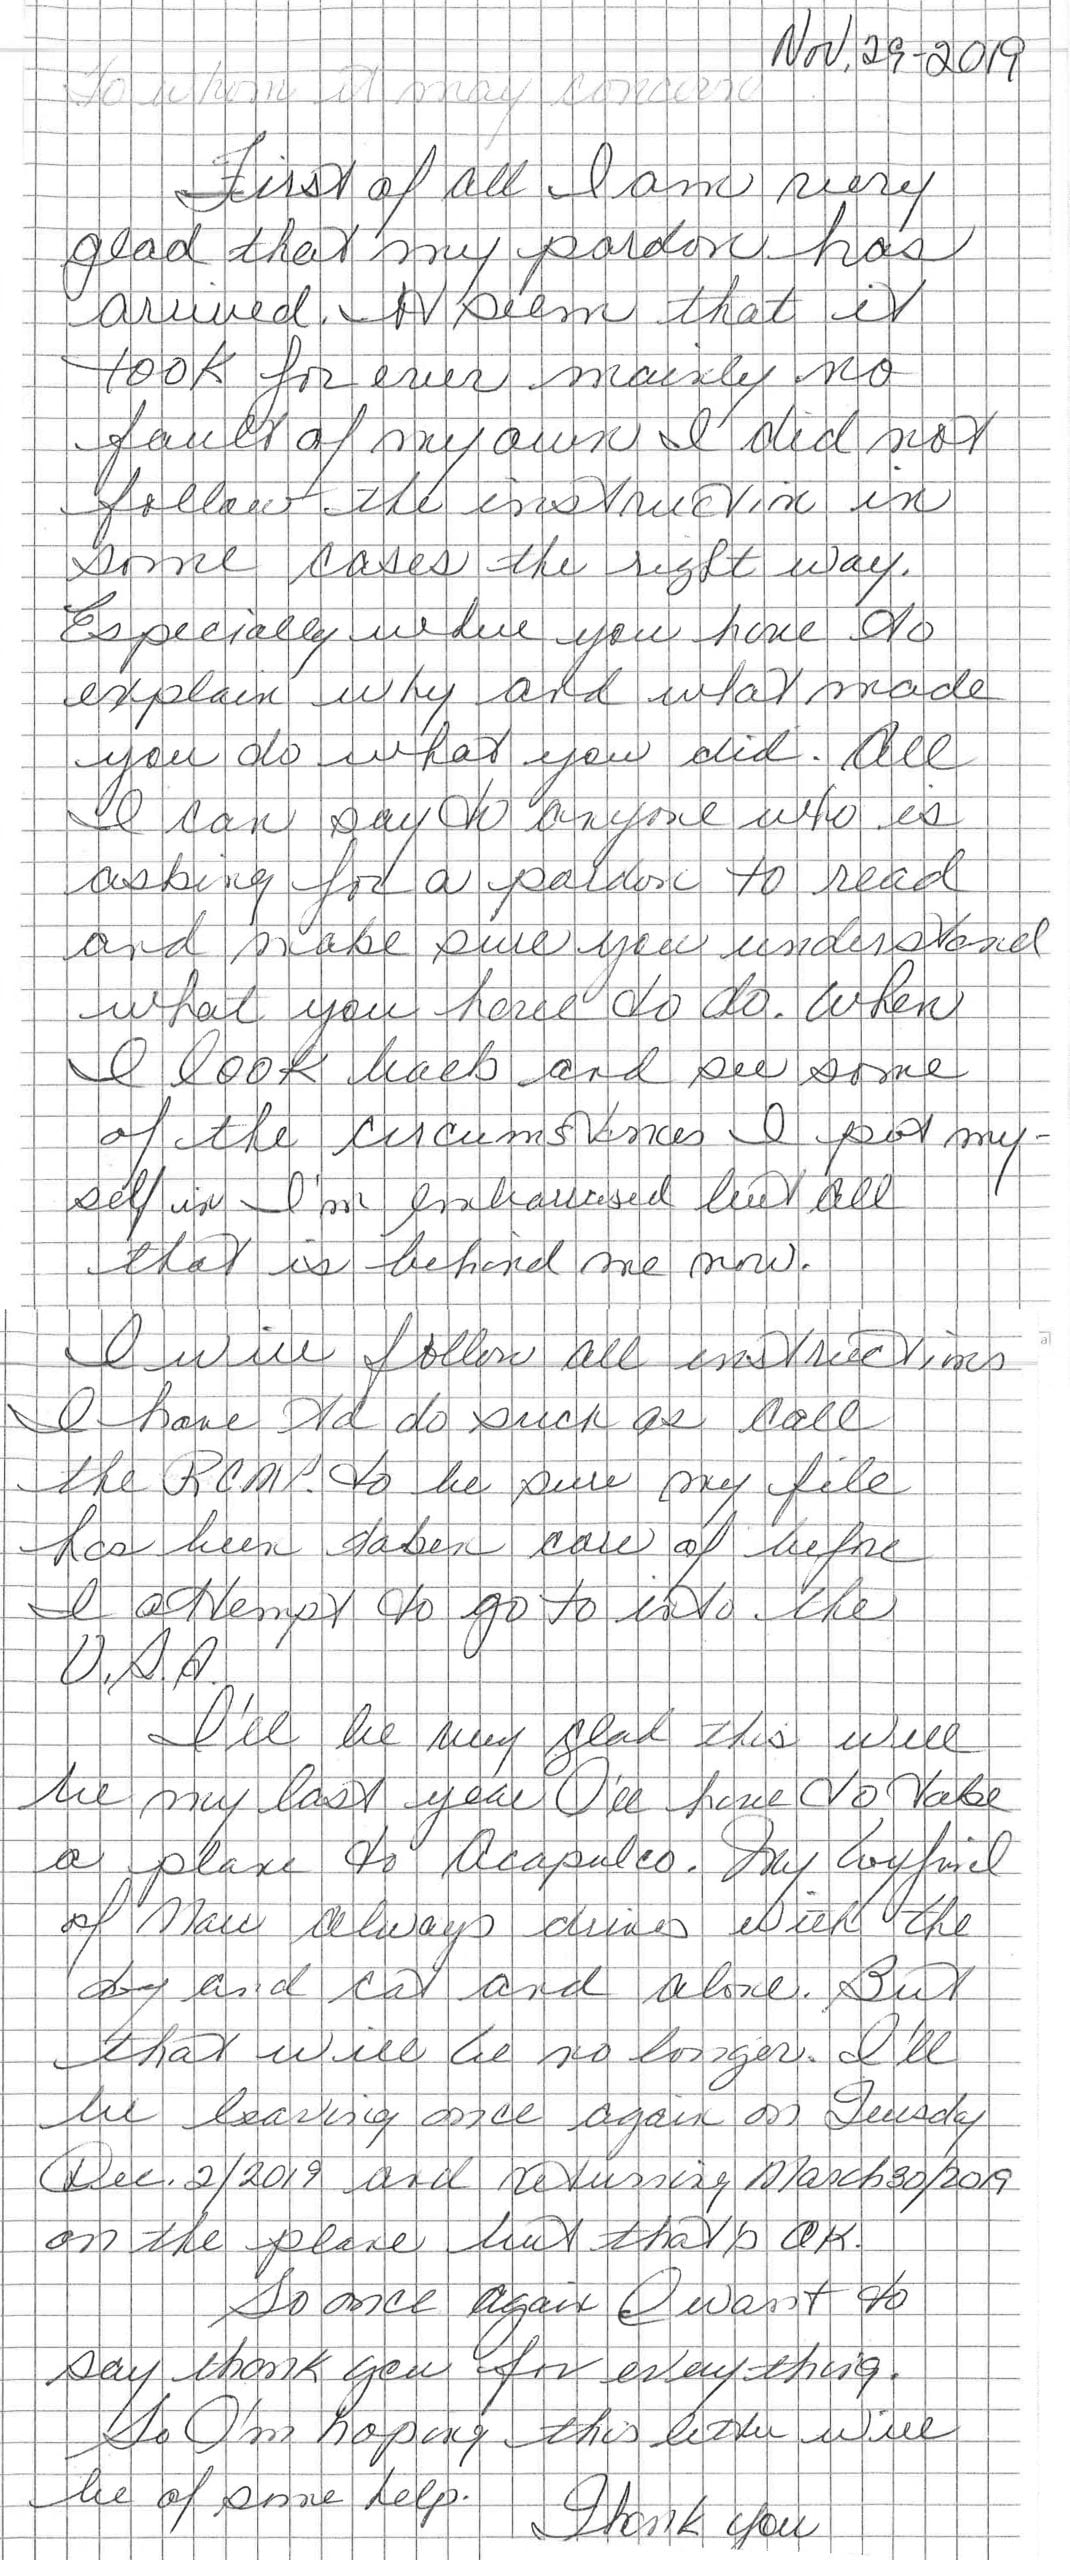 Nov. 29-2019
To whom it may concern
First of all I am very
glad that my pardon has
arrived. It seem that it
took for ever mainly no
fault of my own I did not
follow the instructin in
some cases the right way.
Especially where you have to
explain why and what made
you do what you did. All
I can say to anyone who is
asking for a pardon to read
and make sure you understand
what you have to do. When
I look back and see some
of the circumstnces I put my-
self in I'm embarrased but all
that is behind me now.
I will follow all instructions
I have to do such as call
the RCMP. to be sure my file
has been taken care of before
I attempt to go to into the
U.S.A.
I'll be very glad this will
be my last year I'll have to take
a plane to Acapulco. My boyfriend
of always drives with the
dog and cat and alone. But
that will be no longer. I'll
be leaving once again on Tuesday
Dec. 2/2019 and returning March 30/2019
on the plane but that's OK.
So once again I want to
say thank you for everything.
So I'm hoping this letter will
be of some help.
Thank you